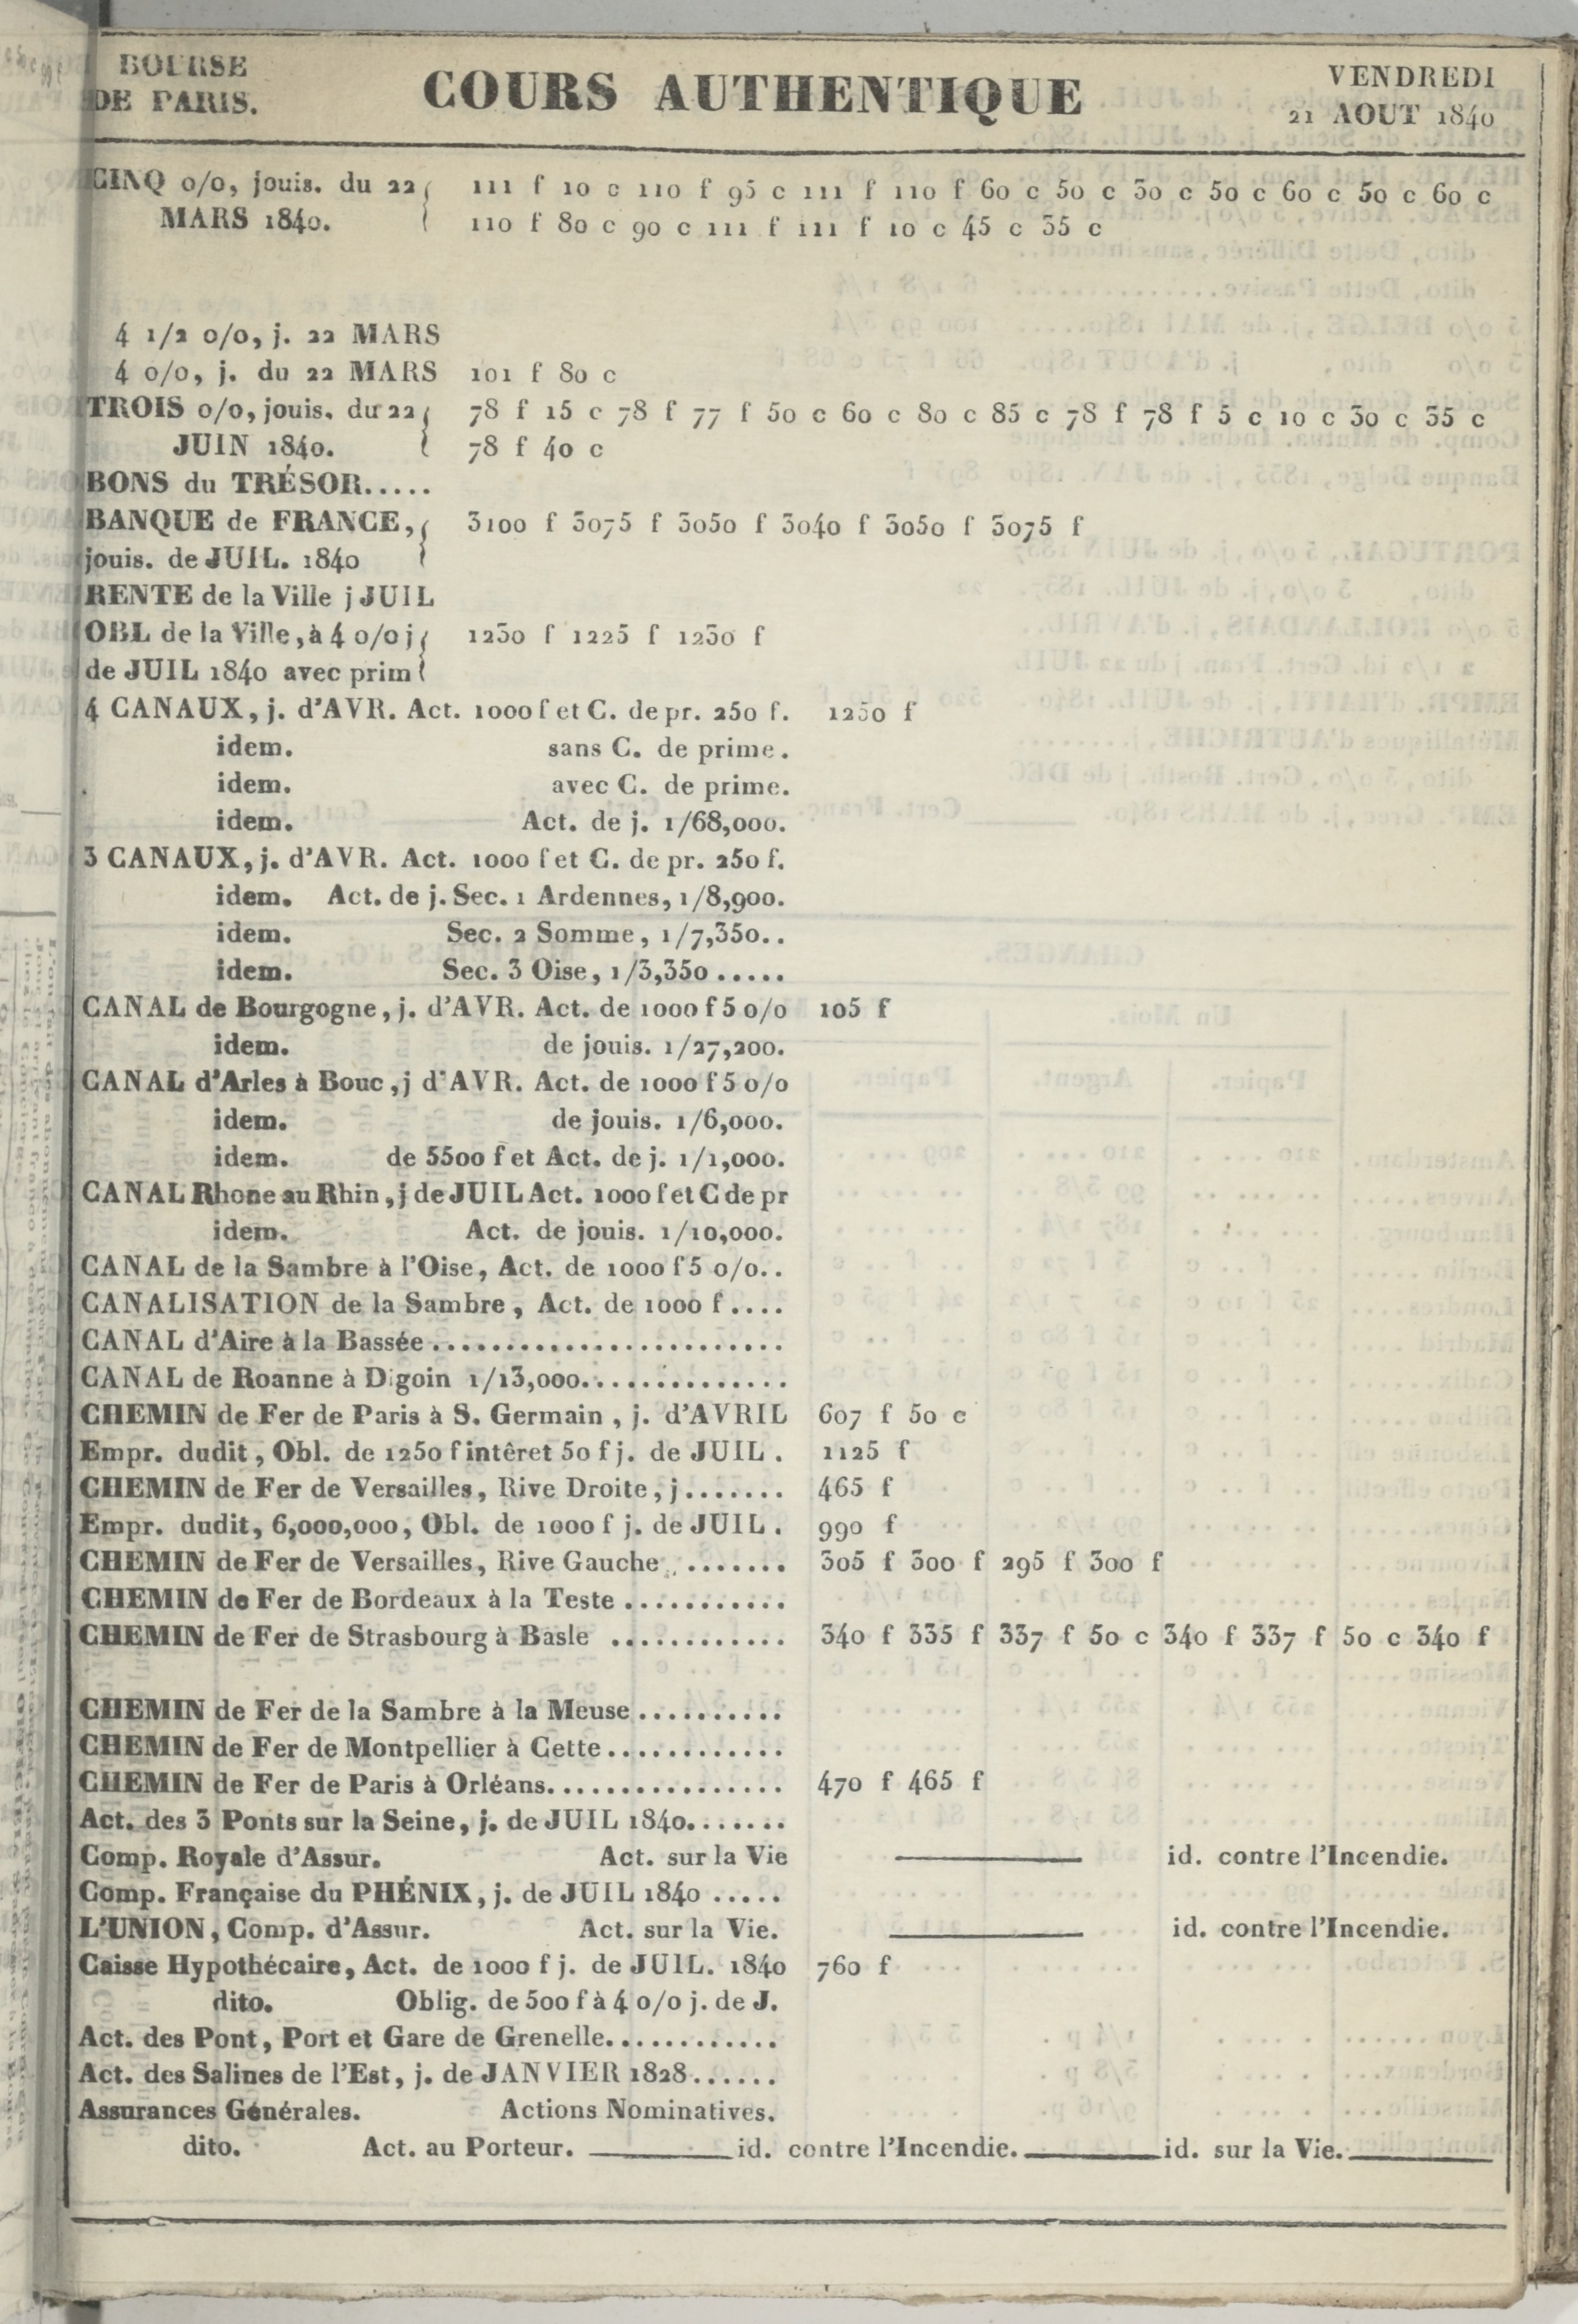 BOURSE
DE PARIS.
COURS AUTHENTIQUE
VENDREDI
21 AOUT 1840
CINQ o/o, jouis. du 22 111 f 10 c 110 f 95 c 111 f 110 f 60 c 50 c 30 c 50 c 60 c 50 c 60 c
MARS 1840. 110 f 80 c 90 c 111 f 111 f 10 c 45 c 35 c
4 1/2 o/o, j. 22 MARS
4 o/o, j. du 22 MARS 101 f 80 c
TROIS o/o, jouis. du 22 78 f 15 c 78 f 77 f 50 c 60 c 80 c 85 c 78 f 78 f 5 c 10 c 30 c 35 c
JUIN 1840. 78 f 40 c
BONS du TRÉSOR.....
BANQUE de FRANCE, 3100 f 3075 f 3050 f 3040 f 3050 f 3075 f
jouis. de JUIL. 1840
RENTE de la Ville j JUIL
OBL de la Ville, à 4 o/o j 1230 f 1225 f 1230 f
de JUIL 1840 avec prim
4 CANAUX, j. d'AVR. Act. 1000 f et C. de pr. 250 f. 1250 f
idem. sans C. de prime.
idem. avec C. de prime.
idem. Act. de j. 1/68,000.
3 CANAUX, j. d'AVR. Act. 1000 f et C. de pr. 250 f.
idem. Act. de j. Sec. 1 Ardennes, 1/8,900.
idem. Sec. 2 Somme, 1/7,350..
idem. Sec. 3 Oise, 1/3,350.....
CANAL de Bourgogne, j. d'AVR. Act. de 1000 f 5 o/o 105 f
idem. de jouis. 1/27,200.
CANAL d'Arles à Bouc, j d'AVR. Act. de 1000 f 5 o/o
idem. de jouis. 1/6,000.
idem. de 5500 f et Act. de j. 1/1,000.
CANAL Rhone au Rhin, j de JUIL Act. 1000 f et C de pr
idem. Act. de jouis. 1/10,000.
CANAL de la Sambre à l'Oise, Act. de 1000 f 5 o/o..
CANALISATION de la Sambre, Act. de 1000 f....
CANAL d'Aire à la Bassée........................
CANAL de Roanne à Digoin 1/13,000..............
CHEMIN de Fer de Paris à S. Germain, j. d'AVRIL 607 f 50 c
Empr. dudit, Obl. de 1250 f intêret 50 f j. de JUIL. 1125 f
CHEMIN de Fer de Versailles, Rive Droite, j....... 465 f
Empr. dudit, 6,000,000, Obl. de 1000 f j. de JUIL. 990 f
CHEMIN de Fer de Versailles, Rive Gauche ....... 305 f 300 f 295 f 300 f
CHEMIN de Fer de Bordeaux à la Teste ...........
CHEMIN de Fer de Strasbourg à Basle ............ 340 f 335 f 337 f 50 c 340 f 337 f 50 c 340 f
CHEMIN de Fer de la Sambre à la Meuse..........
CHEMIN de Fer de Montpellier à Cette............
CHEMIN de Fer de Paris à Orléans................ 470 f 465 f
Act. des 3 Ponts sur la Seine, j. de JUIL 1840.......
Comp. Royale d'Assur. Act. sur la Vie id. contre l'Incendie.
Comp. Française du PHÉNIX, j. de JUIL 1840 .....
L'UNION, Comp. d'Assur. Act. sur la Vie. id. contre l'Incendie.
Caisse Hypothécaire, Act. de 1000 f j. de JUIL. 1840 760 f
dito. Oblig. de 500 f à 4 o/o j. de J.
Act. des Pont, Port et Gare de Grenelle............
Act. des Salines de l'Est, j. de JANVIER 1828......
Assurances Générales. Actions Nominatives.
dito. Act. au Porteur. id. contre l'Incendie. id. sur la Vie.